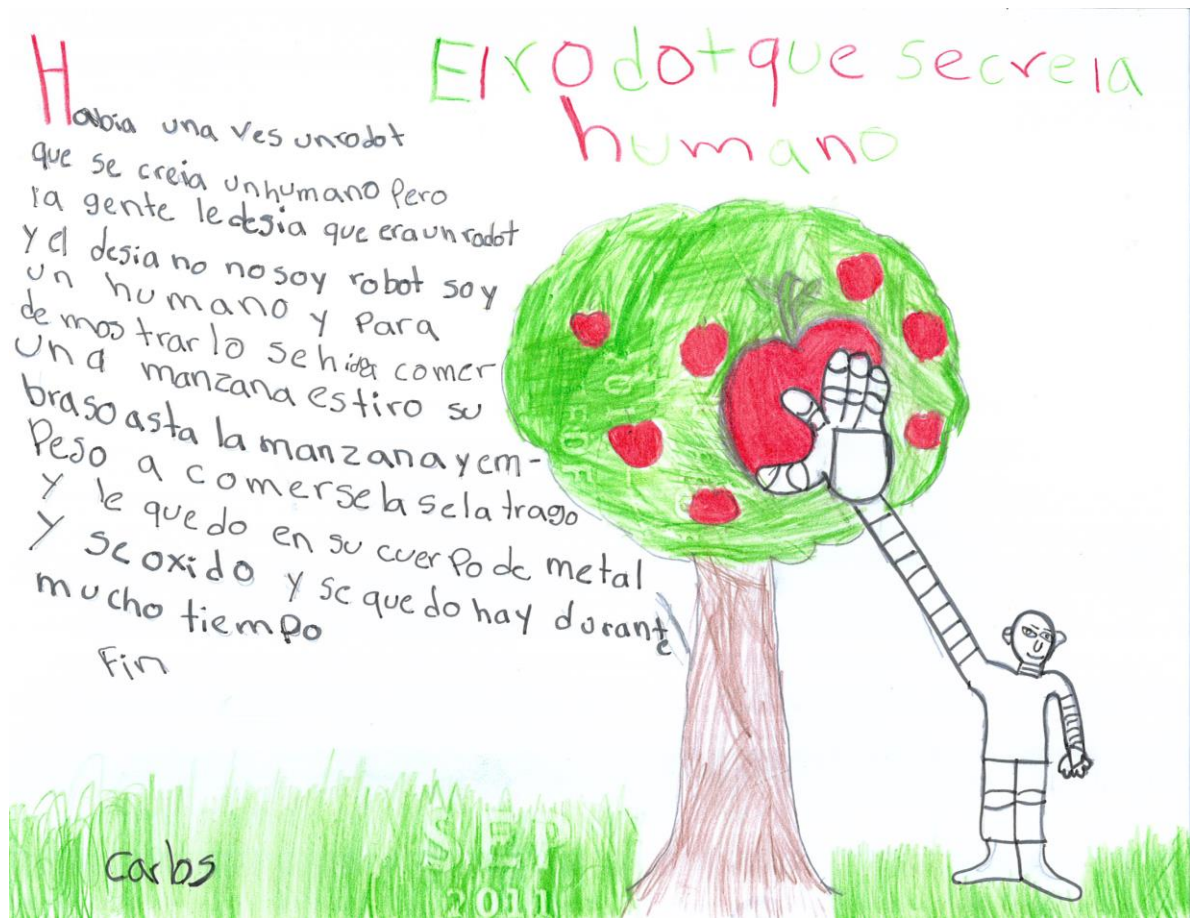 El rodot que secreia
humano
Habia una ves unrodot
que se creia unhumano Pero
la gente ledesia que eraunrodot
y el desia no nosoy robot soy
un humano y Para
demos trar lo se hiba comer
una manzana estiro su
braso asta la manzana y em-
Peso a comersela sela trago
y le quedo en su cuerPo de metal
y se oxido y se quedo hay durante
mucho tiempo
Fin
Carlos
SEP
2011